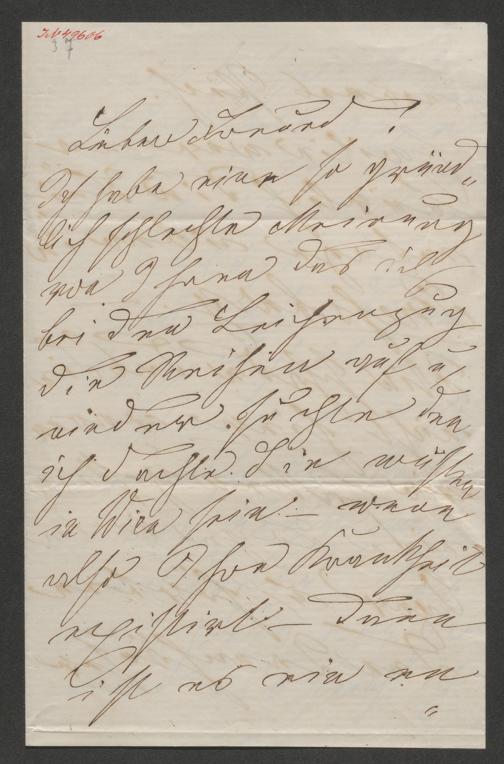 I.N 49606
37
Lieber Freund!
Ich habe eine so gründ„
lich schlechte Meinung
von Ihnen das ich
bei den Leichenzug
die Reihen auf u
nieder suchte den
ich dachte Sie müßten
in Wien sein – wenn
also Ihre Krankheit
existirt – dann
ist es ein en„